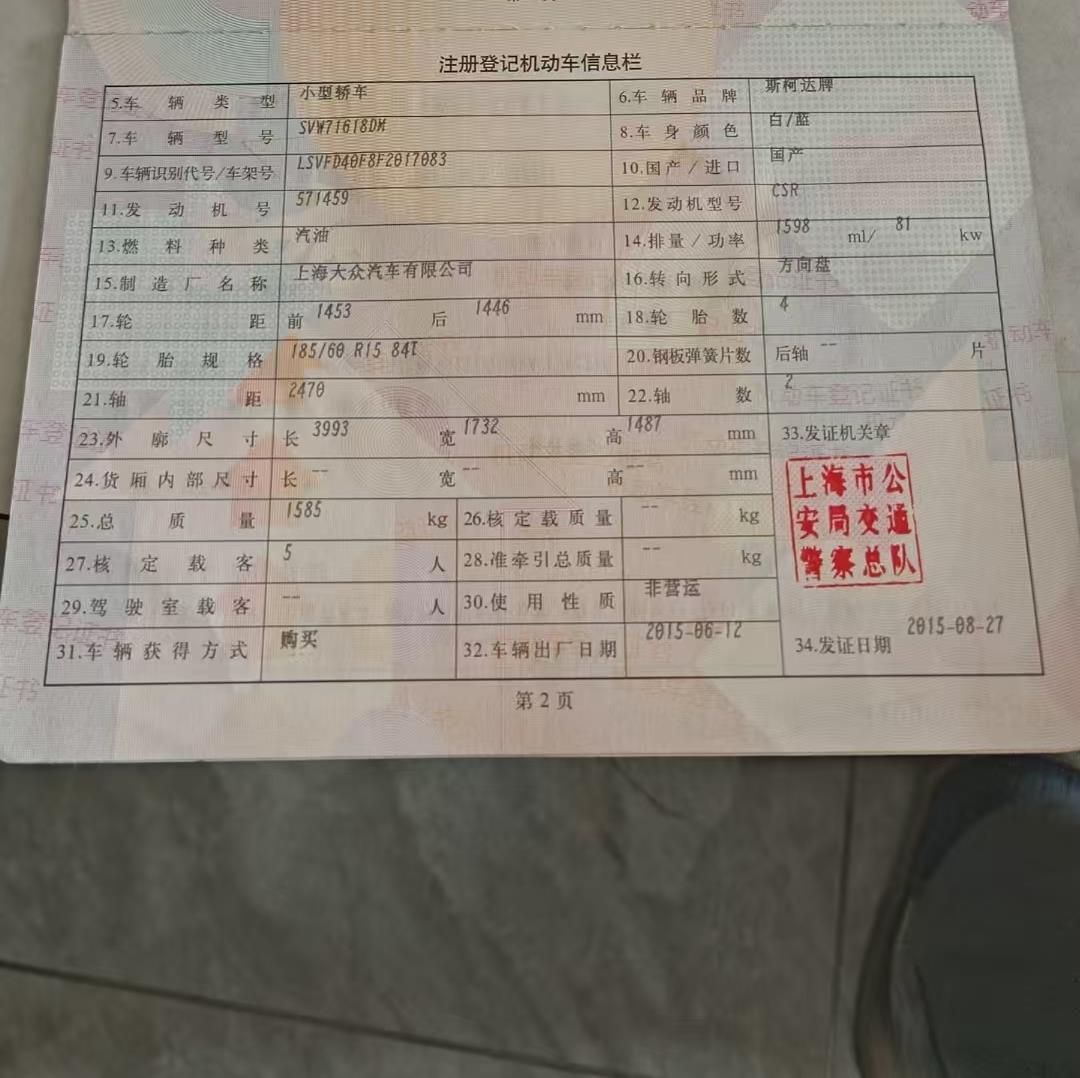 注册登记机动车信息栏
5.车辆类型 小型轿车 6.车辆品牌 斯柯达牌
7.车辆型号 SVW71618DM 8.车身颜色 白/蓝
9.车辆识别代号/车架号 LSVFD40F8F2017083 10.国产/进口 国产
11.发动机号 571459 12.发动机型号 CSR
13.燃料种类 汽油 14.排量/功率 1598 ml/ 81 kw
15.制造厂名称 上海大众汽车有限公司 16.转向形式 方向盘
17.轮距 前 1453 后 1446 mm 18.轮胎数 4
19.轮胎规格 185/60 R15 84T 20.钢板弹簧片数 后轴 -- 片
21.轴距 2470 mm 22.轴数 2
23.外廓尺寸 长 3993 宽 1732 高 1487 mm 33.发证机关章
24.货厢内部尺寸 长 -- 宽 -- 高 -- mm
上海市公
安局交通
警察总队
25.总质量 1585 kg 26.核定载质量 -- kg
27.核定载客 5 人 28.准牵引总质量 -- kg
29.驾驶室载客 -- 人 30.使用性质 非营运
31.车辆获得方式 购买 32.车辆出厂日期 2015-06-12 34.发证日期 2015-08-27
第 2 页